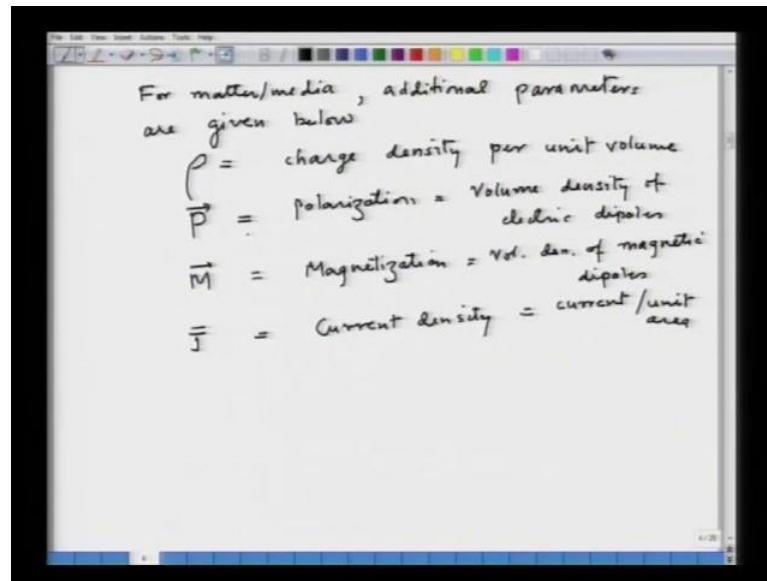 File Edit View Insert Actions Tools Help
For matter/media, additional parameters
are given below
ρ = charge density per unit volume
P⃗ = Polarization = Volume density of
electric dipoles
M⃗ = Magnetization = Vol. den. of magnetic
dipoles
J = Current density = current/unit
area